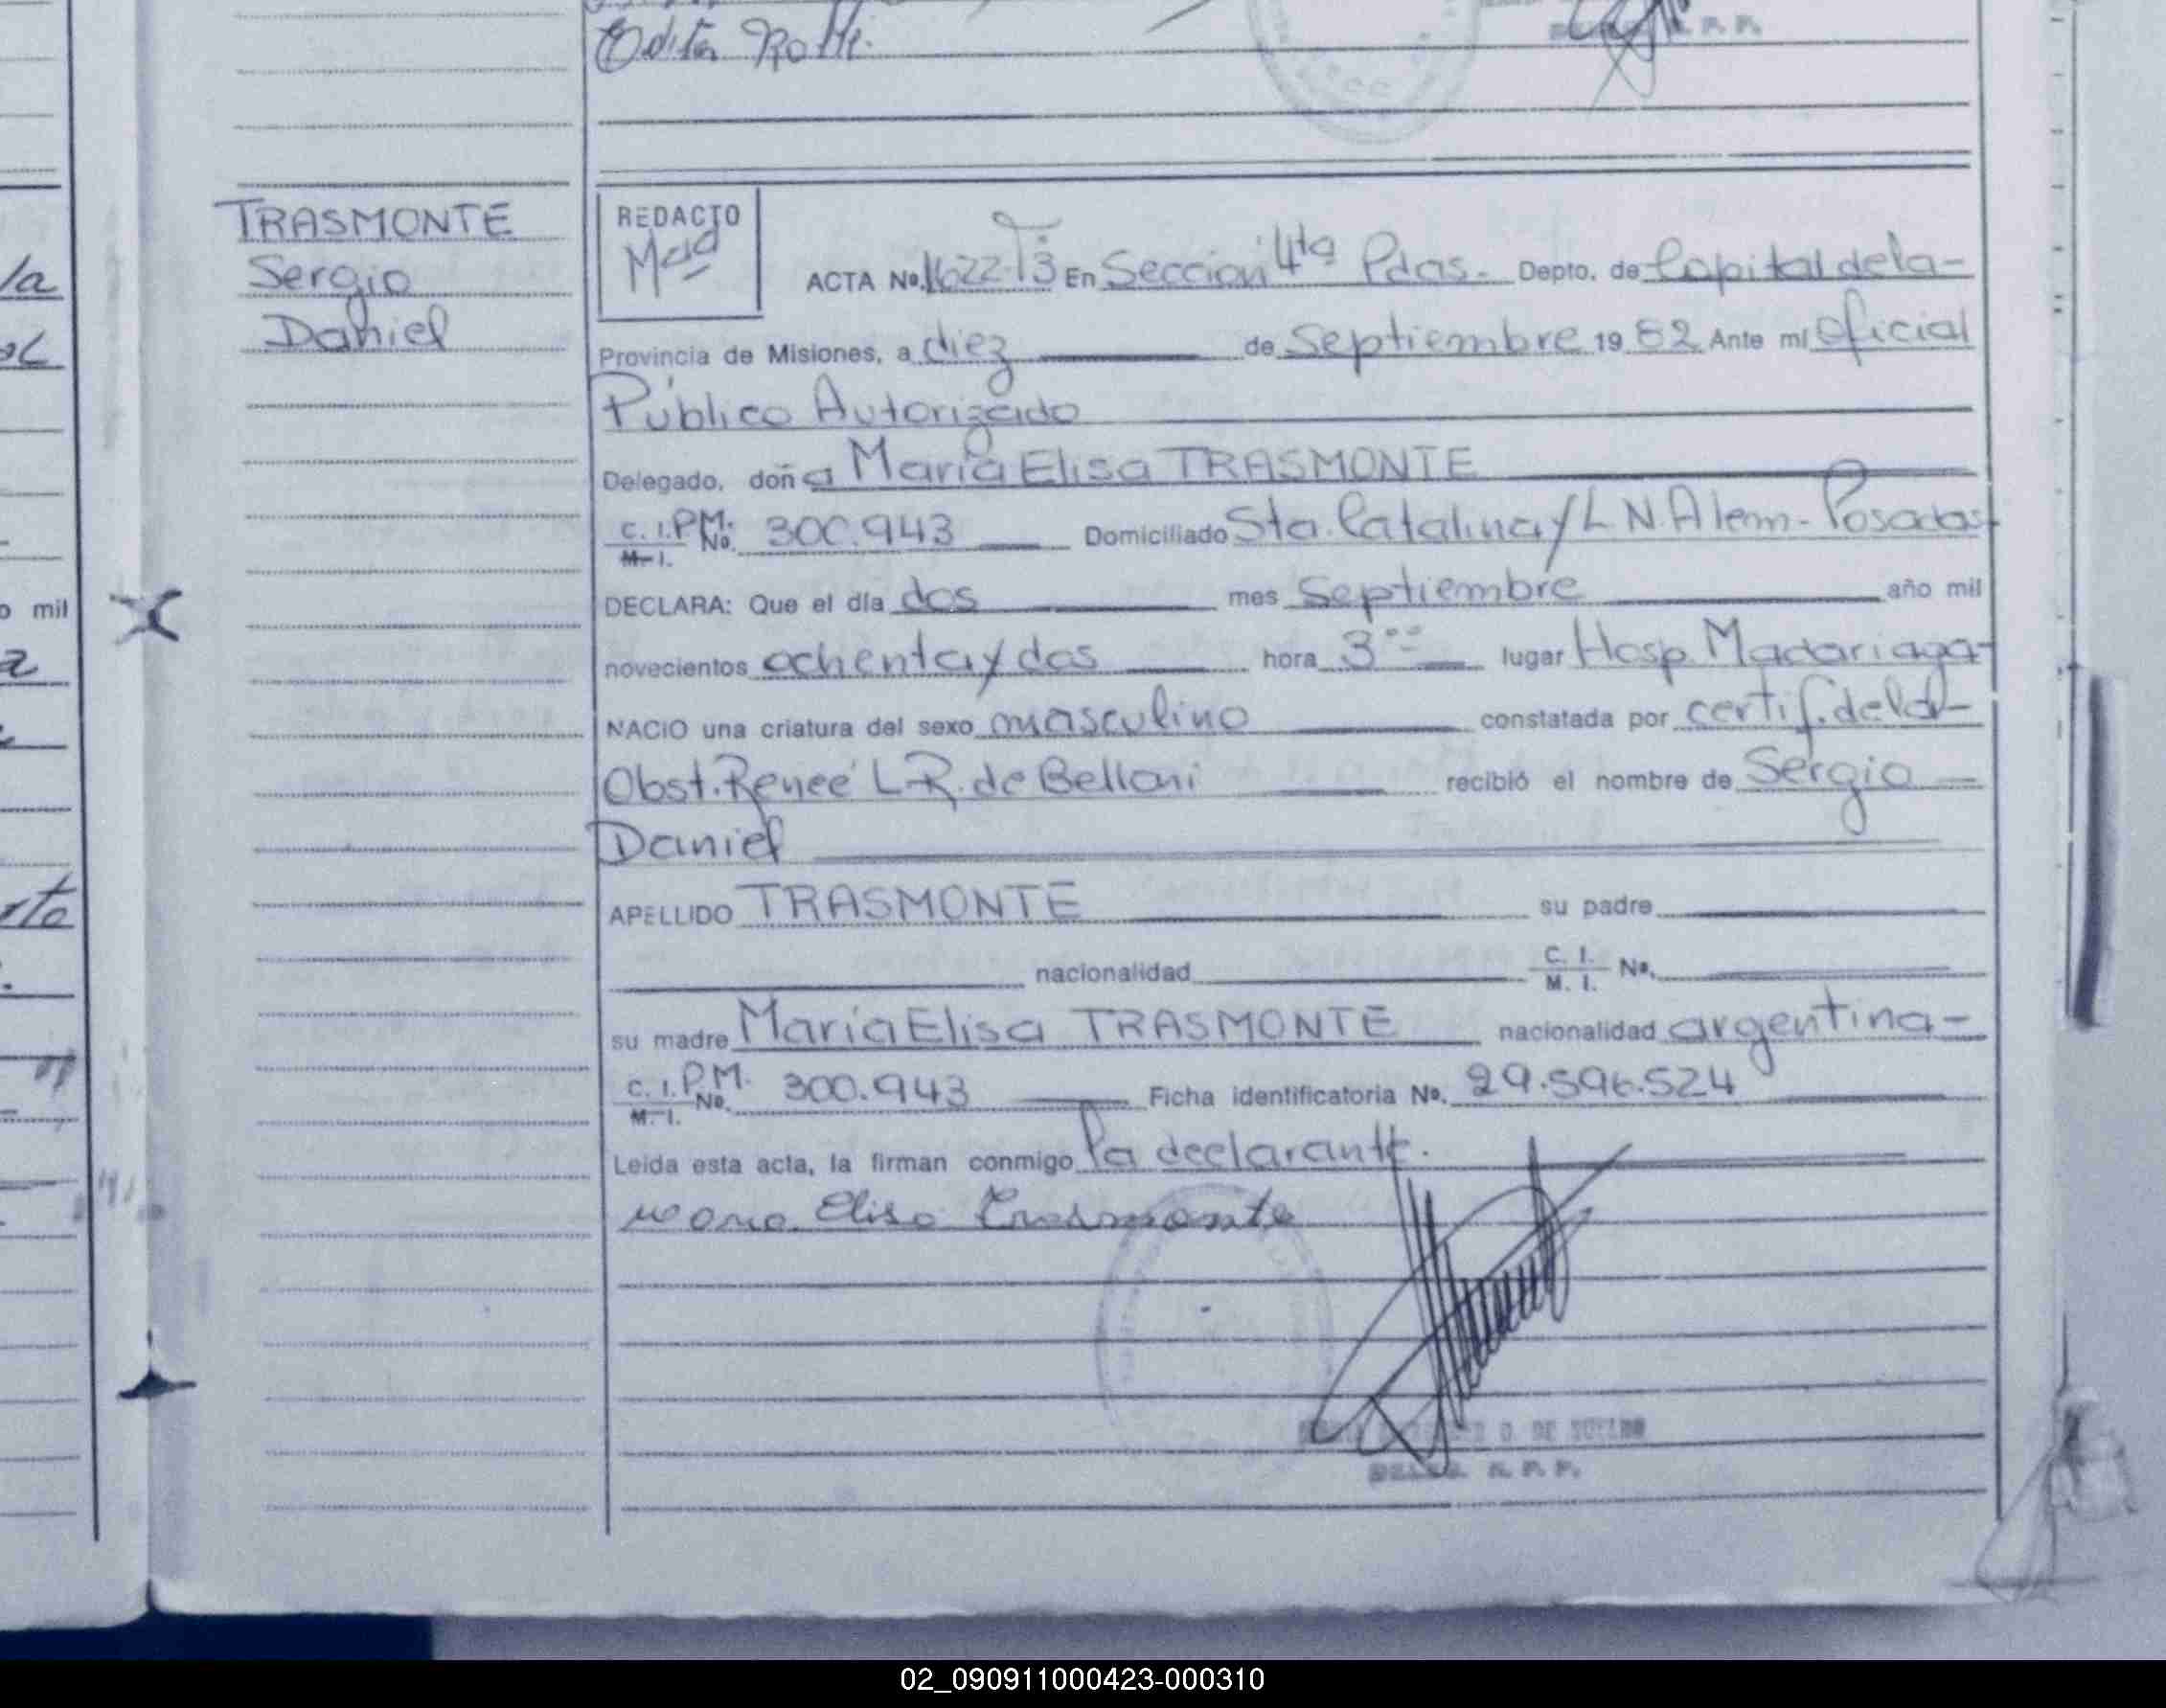 Edita
P. P.
TRASMONTE
Sergio
Daniel
REDACTO
ACTA No. 1622 T3 En Sección 4ta Pdas. Depto. de Capital de la-
Provincia de Misiones, a diez de Septiembre 19 82 Ante mí Oficial
Público Autorizado
Delegado, doña María Elisa TRASMONTE
C. I. P.M. No. 300.943 Domiciliado Sta. Catalina y L N. Alem - Posadas
M. I.
DECLARA: Que el día dos mes Septiembre año mil
novecientos ochenta y dos hora 3 lugar Hosp. Madariaga-
NACIO una criatura del sexo masculino constatada por certif. de la-
Obst. Reneé L R. de Belloni recibió el nombre de Sergio
Daniel
APELLIDO TRASMONTE su padre
nacionalidad C. I. No.
M. I.
su madre María Elisa TRASMONTE nacionalidad argentina-
C. I. P.M. No. 300.943 Ficha identificatoria No. 29.596.524
M. I.
Leída esta acta, la firman conmigo la declarante.
Maria Elisa Trasmonte
D. DE
R. P. P.
la
o mil
a
02_090911000423-000310